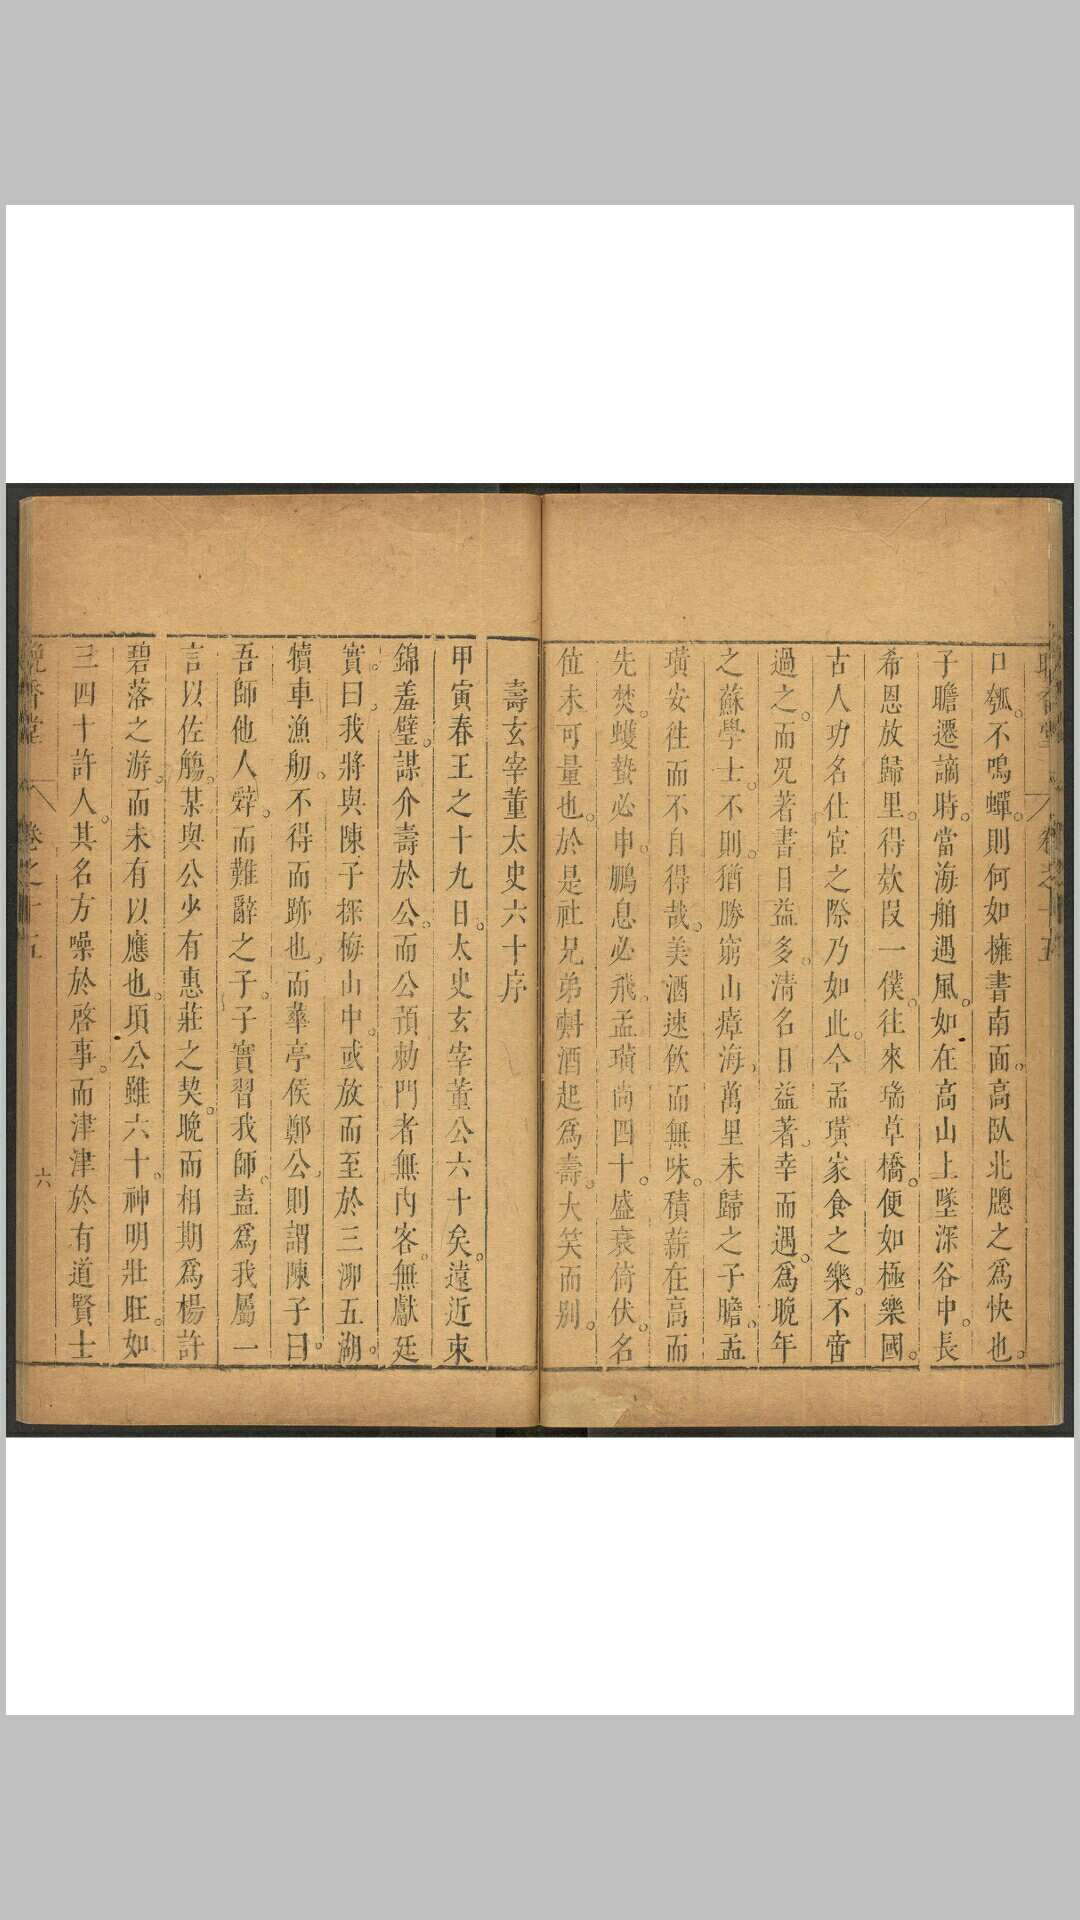 卷之十五
口瓠。不鳴蟬。則何如擁書南面。高臥北牕之爲快也。
子瞻遷謫時。當海舶遇風。如在高山上墜深谷中。長
希恩放歸里。得欵段一僕。往來瑞草橋。便如極樂國。
古人功名仕宦之際乃如此。今孟璜家食之樂。不啻
過之。而況著書日益多。清名日益著。幸而遇。爲晚年
之蘇學士。不則。猶勝窮山瘴海。萬里未歸之子瞻。孟
璜安往而不自得哉。美酒速飲而無味。積薪在高而
先焚。蠖蟄必申。鵬息必飛。孟璜尚四十。盛衰倚伏。名
位未可量也。於是社兄弟㪺酒起爲壽。大笑而別。
壽玄宰董太史六十序
甲寅春王之十九日。太史玄宰董公六十矣。遠近束
錦羞璧。謀介壽於公。而公預勑門者無內客。無獻廷
實。曰。我將與陳子探梅山中。或放而至於三泖五湖。
犢車漁舠。不得而跡也。而蓽亭侯鄭公。則謂陳子曰。
吾師他人辤。而難辭之子。子實習我師。盍爲我屬一
言以佐觴。某與公少有惠莊之契。晚而相期爲楊許
碧落之游。而未有以應也。頃公雖六十。神明壯旺。如
三四十許人。其名方噪於啓事。而津津於有道賢士
晚香堂 卷之十五 六